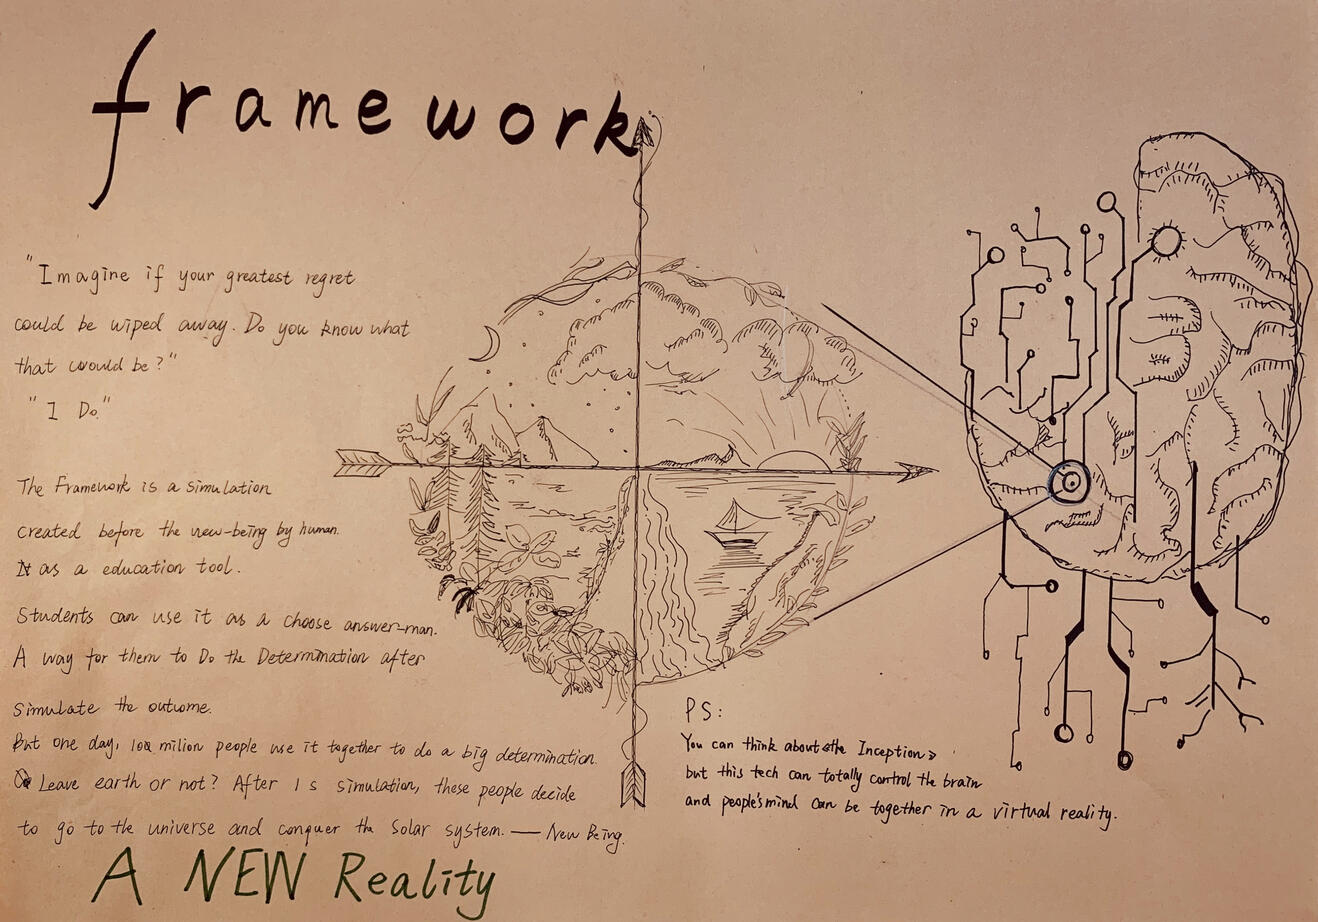 framework
"Imagine if your greatest regret
could be wiped away. Do you know what
that would be?"
"I Do."
The Framework is a simulation
created before the new-being by human.
It as a education tool.
Students can use it as a choose answer-man.
A way for them to Do the Determination after
simulate the outcome.
But one day, 100 milion people use it together to do a big determination.
Leave earth or not? After 1 s simulation, these people decide
to go to the universe and conquer the Solar system. — New Being.
A NEW Reality
PS:
You can think about 《the Inception》
but this tech can totally control the brain
and people's mind can be together in a virtual reality.